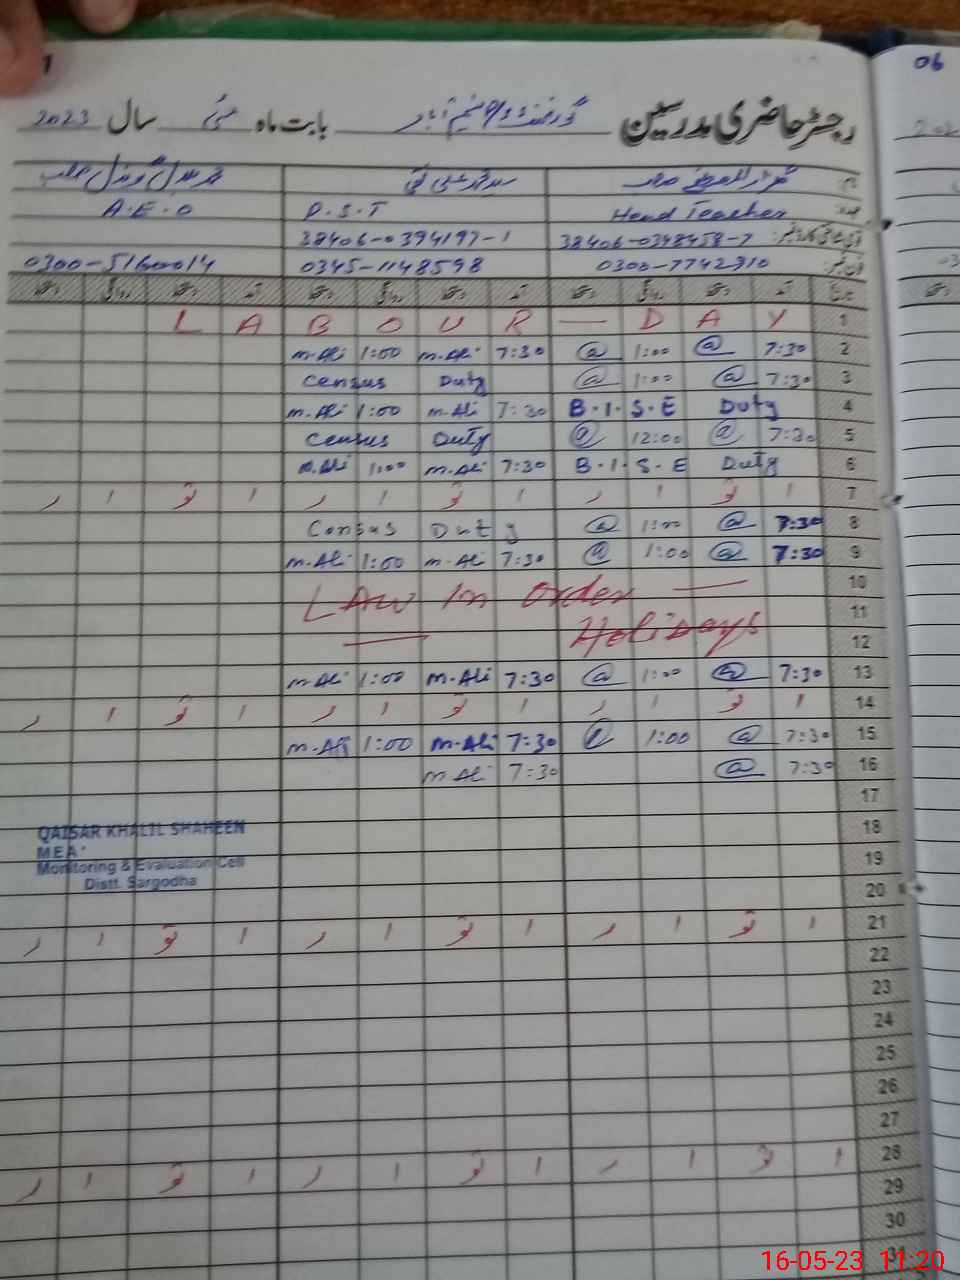 06
رجسٹر حاضری مدرسین گورنمنٹ بابت ماہ مئی سال 2023
نام
عہدہ Head Teacher P.S.T A.E.O
38406-0348458-7 38406-0394197-1
فون نمبر: 0300-7742310 0345-1148598 0300-5160014
تاریخ آمد دستخط روانگی دستخط آمد دستخط روانگی دستخط آمد دستخط روانگی دستخط
L A B O U R — D A Y 1
m.Ali 1:00 m.Ali 7:30 @ 1:00 @ 7:30 2
Census Duty @ 1:00 @ 7:30 3
m.Ali 1:00 m.Ali 7:30 B.I.S.E Duty 4
Census Duty @ 12:00 @ 7:30 5
m.Ali 1:00 m.Ali 7:30 B.I.S.E Duty 6
ا تو ا ر ا تو ا ر ا تو ا ر 7
Census Duty @ 1:00 @ 7:30 8
m.Ali 1:00 m.Ali 7:30 @ 1:00 @ 7:30 9
Law In Order — 10
— Holidays 11
12
m.Ali 1:00 m.Ali 7:30 @ 1:00 @ 7:30 13
ا تو ا ر ا تو ا ر ا تو ا ر 14
m.Ali 1:00 m.Ali 7:30 @ 1:00 @ 7:30 15
m.Ali 7:30 @ 7:30 16
17
QAISAR KHALIL SHAHEEN 18
MEA
Monitoring & Evaluation Cell 19
Distt. Sargodha 20
ا تو ا ر ا تو ا ر ا تو ا ر 21
22
23
24
25
26
27
ا تو ا ر ا تو ا ر ا تو ا ر 28
29
30
31
16-05-23 11:20